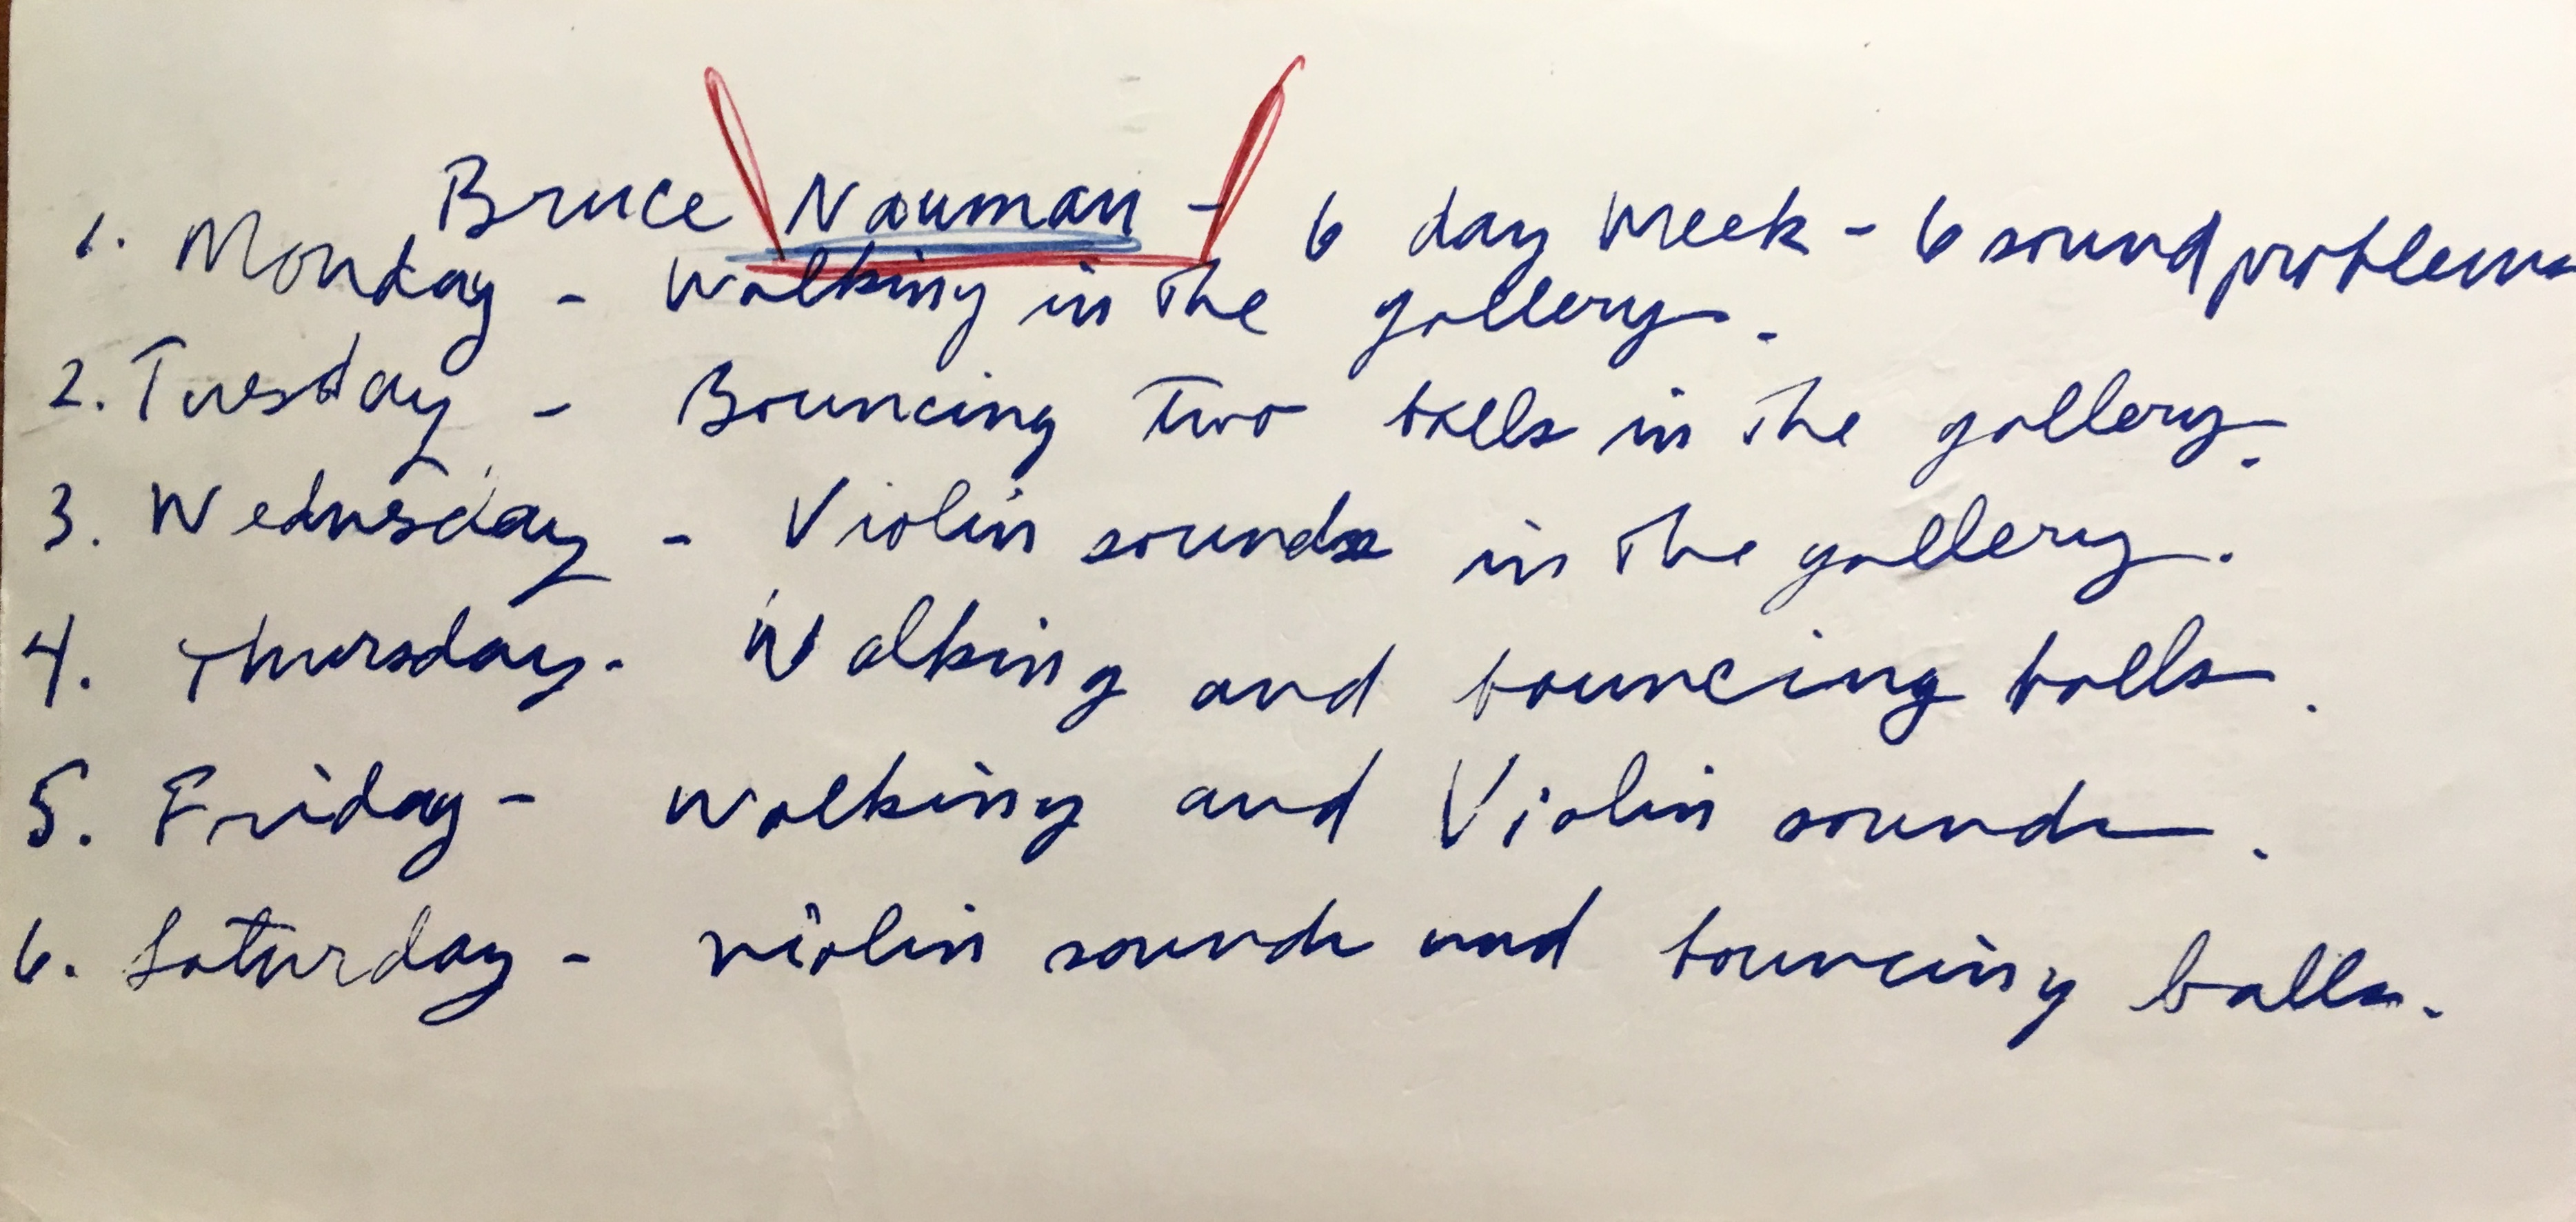 Bruce Nauman - 6 day week - 6 sound problems
1. Monday - walking in the gallery.
2. Tuesday - Bouncing two balls in the gallery.
3. Wednesday - Violin sounds in the gallery.
4. Thursday. Walking and bouncing balls.
5. Friday - walking and Violin sounds.
6. Saturday - violin sounds and bouncing balls.